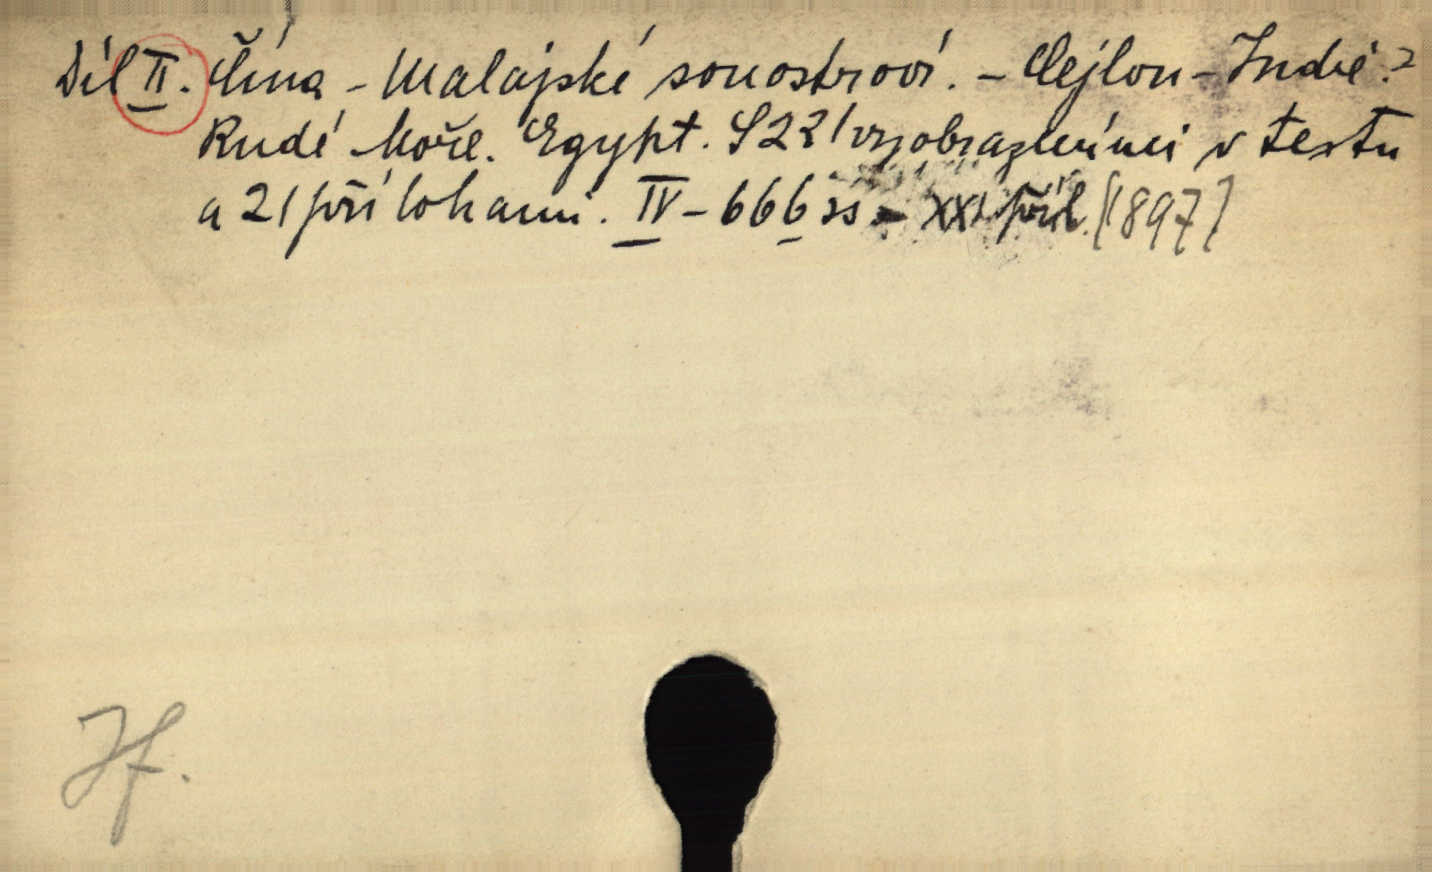 Díl II. Čína - Malajské souostroví. - Cejlon - Indie?
Rudé Moře. Egypt. S 221 vyobrazeními v textu
a 21 přílohami. IV - 666 ss - XXI příl. [1897]
Jf.